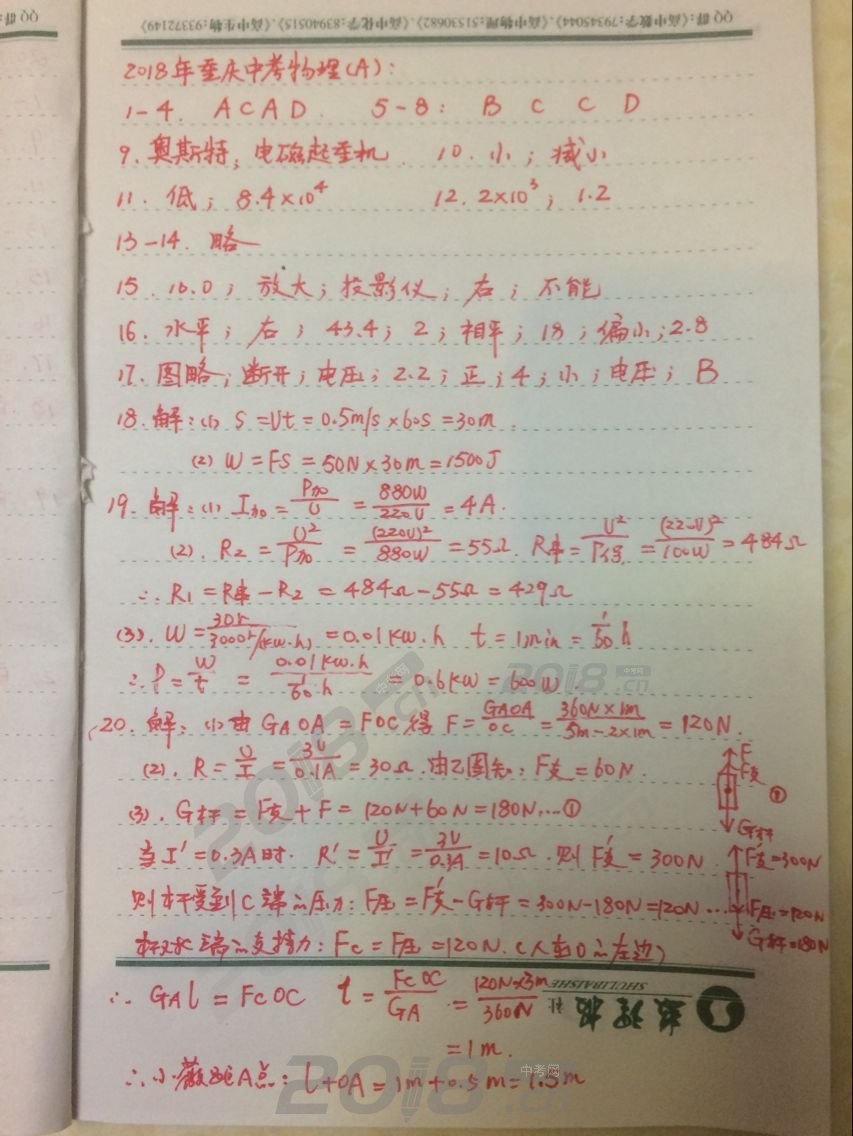 QQ群:《高中数学:79345044》、《高中物理:51530682》、《高中化学:83940515》、《高中生物:93372149》
2018年重庆中考物理(A):
1-4. A C A D 5-8: B C C D
9.奥斯特;电磁起重机 10.小;减小
11.低;8.4×10⁴ 12.2×10³;1.2
13-14.略
15.10.0;放大;投影仪;右;不能
16.水平;右;43.4;2;相平;18;偏小;2.8
17.图略;断开;电压;2.2;正;4;小;电压;B
18.解:(1) S=Vt=0.5m/s×60s=30m.
(2) W=FS=50N×30m=1500J
19.解:(1) I加=P加/U=880W/220V=4A.
(2). R2=U²/P加=(220V)²/880W=55Ω. R串=U²/P保=(220V)²/100W=484Ω
∴R1=R串-R2=484Ω-55Ω=429Ω
(3). W=30r/3000r/(kw.h)=0.01kw.h t=1min=1/60 h
∴P=W/t=0.01kw.h/(1/60.h)=0.6kw=600W.
20.解:(1)由GAOA=FOC得 F=GAOA/OC=360N×1m/5m-2×1m=120N.
(2). R=U/I=3V/0.1A=30Ω.由乙图知:F支=60N.
F
F支
①
G杆
(3). G杆=F支+F=120N+60N=180N...①
当I'=0.3A时. R'=U/I'=3V/0.3A=10Ω.则F支'=300N
F支'=300N
则杆受到C端的压力:F压=F支'-G杆=300N-180N=120N...
F压=120N
G杆=180N
端的支持力:Fc=F压=120N.(人在O的左边)
∴GAl=FcOC l=FcOC/GA=120N×3m/360N
=1m.
∴小薇距A点:l+OA=1m+0.5m=1.5m
数理报社
SHULIBAOSHE
2018中考网.cn
2018中考网.cn
2018中考网.cn